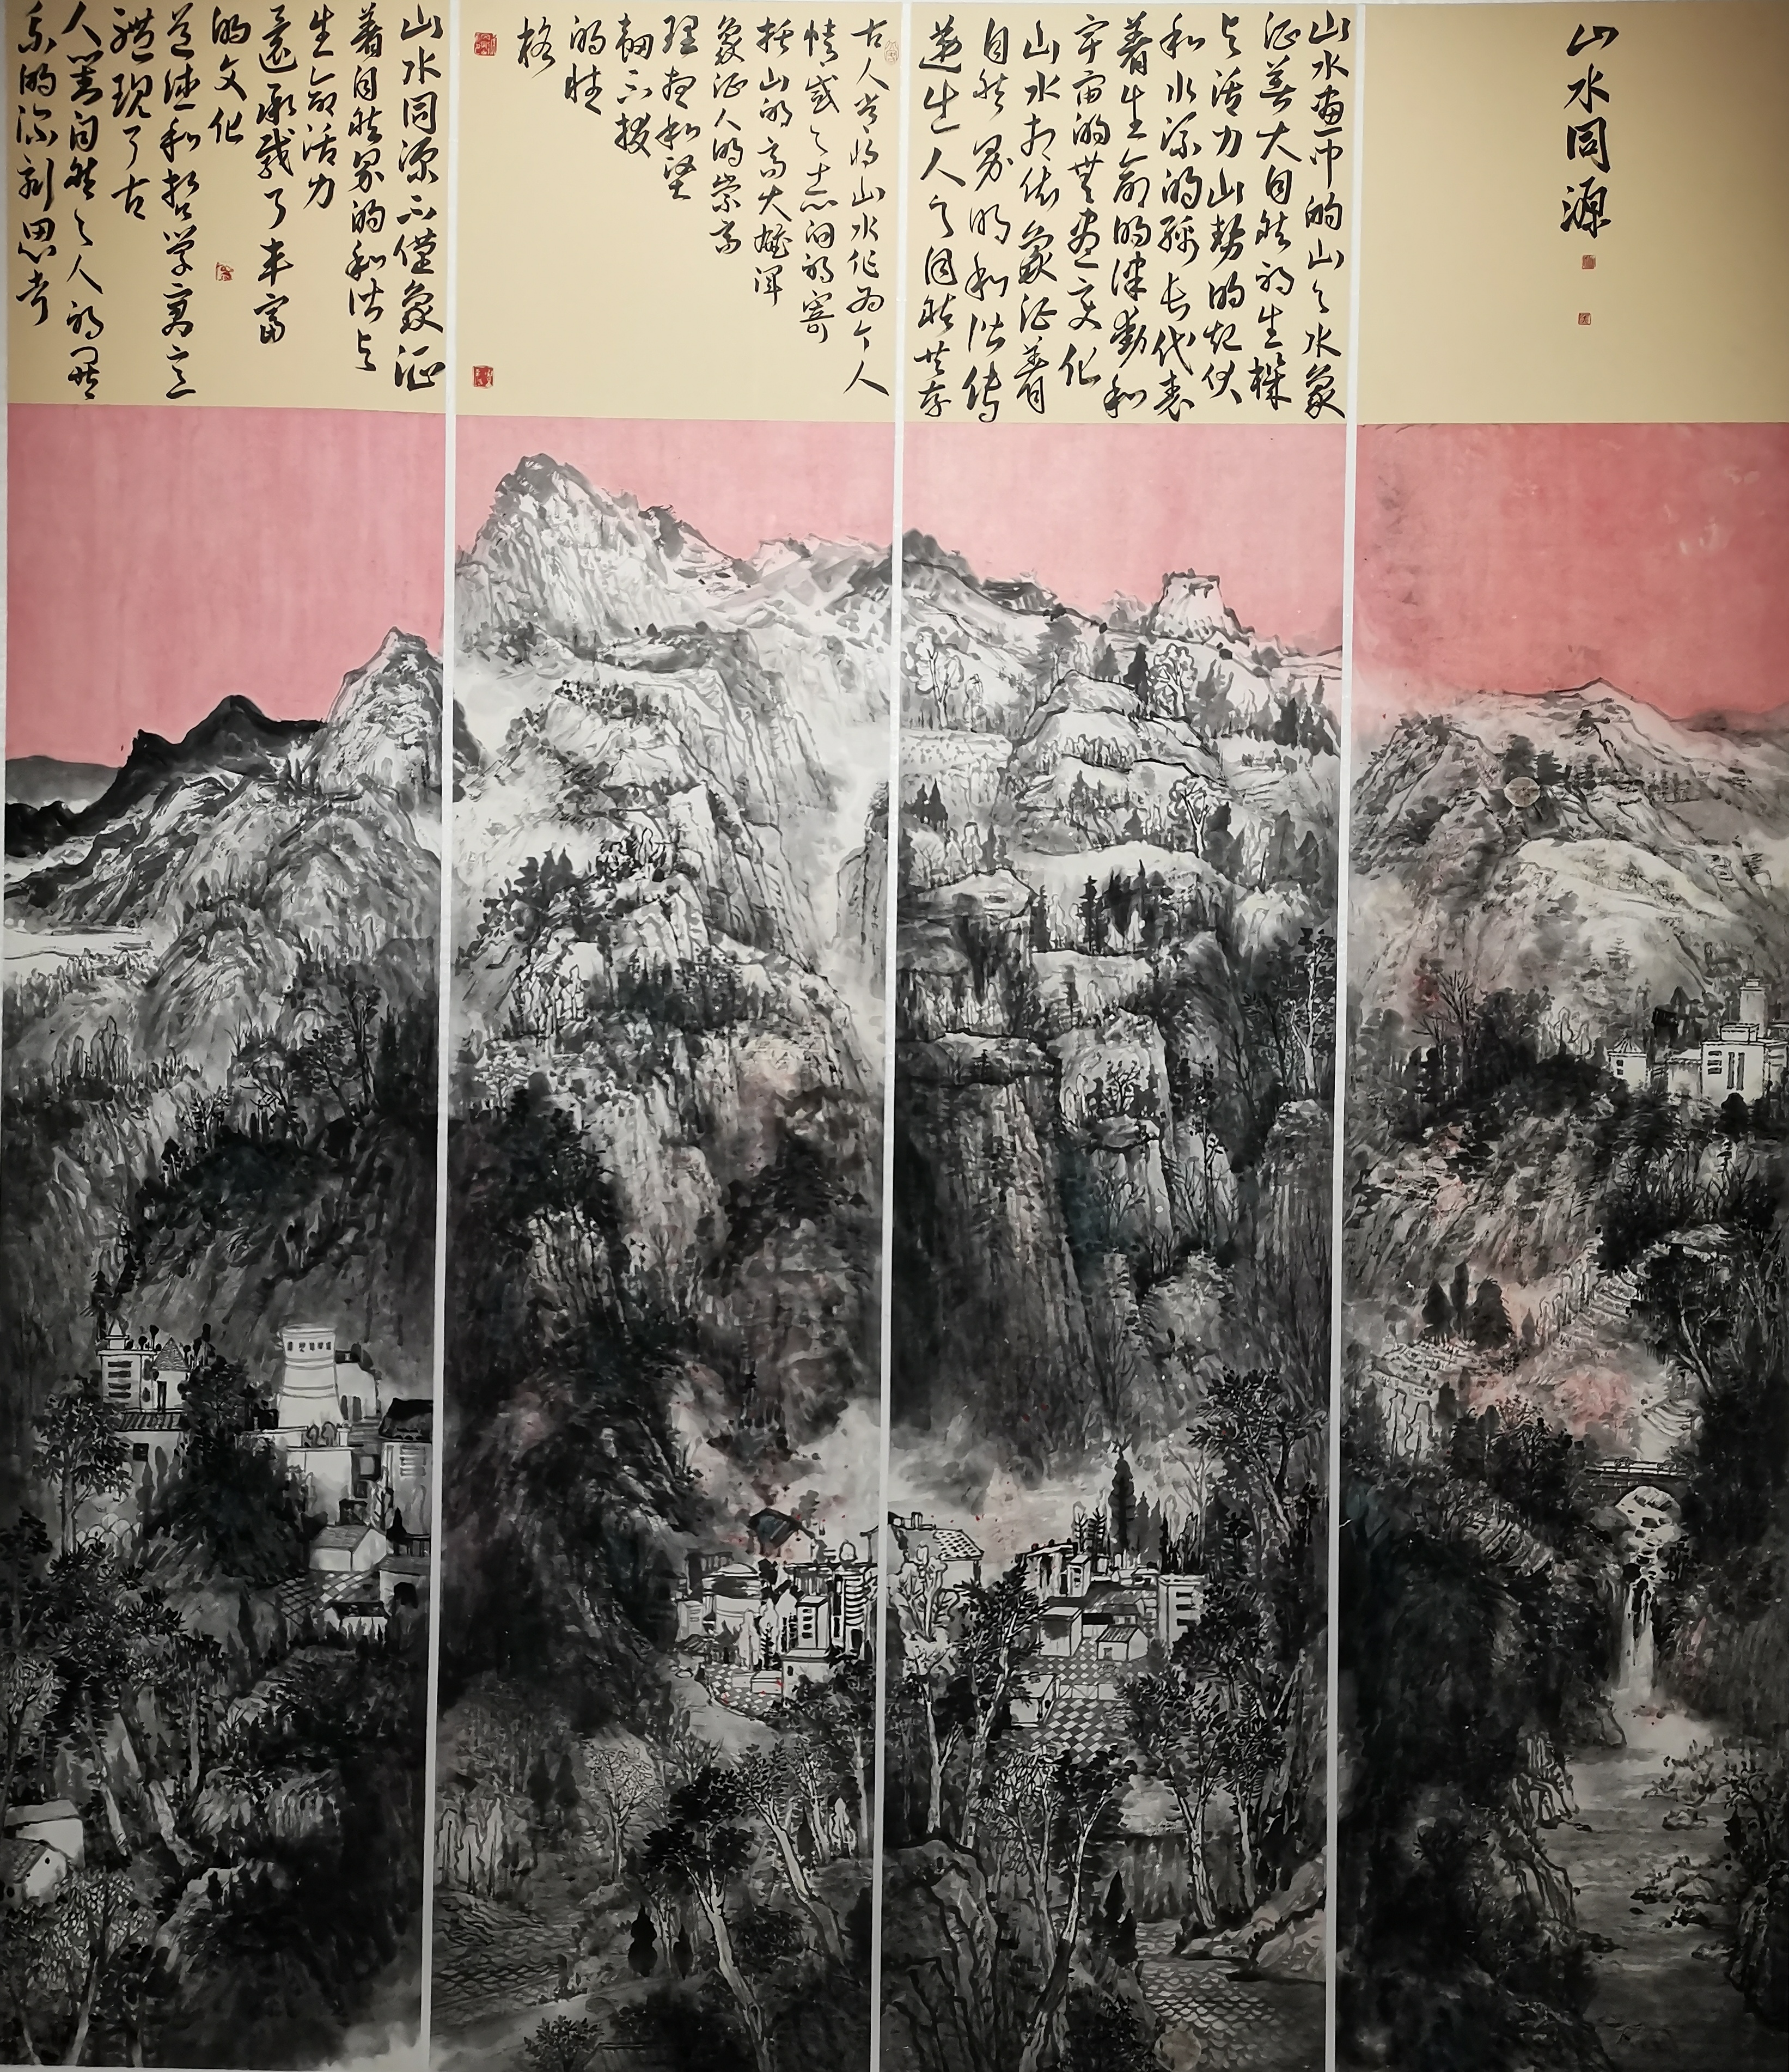 山水同源
山水画中的山与水象
征着大自然的生机
与活力山势的起伏
和水流的绵长代表
着生命的律动和
宇宙的无尽变化
山水相依象征着
自然界的和谐传
递出人与自然共存
古人常将山水作为个人
情感与志向的寄
托山的高大雄浑
象征人的崇高
理想和坚
韧不拔
的性
格
山水同源不仅象征
着自然界的和谐与
生命活力
还承载了丰富
的文化
道德和哲学寓意
体现了古
人对自然与人的关
系的深刻思考